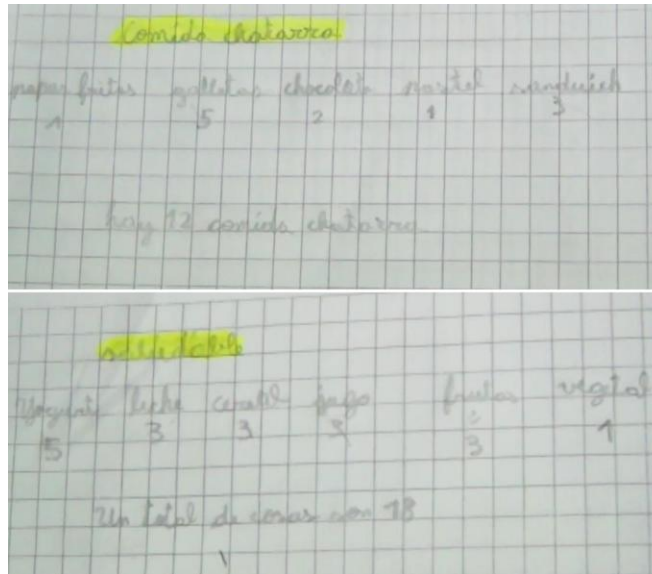 Comida chatarra
papas fritas galletas chocolate pastel sanduich
1 5 2 1 3
hay 12 comida chatarra
saludable
Yogurt leche cereal jugo frutas vegtal
5 3 3 3 3 1
Un total de cosas son 18